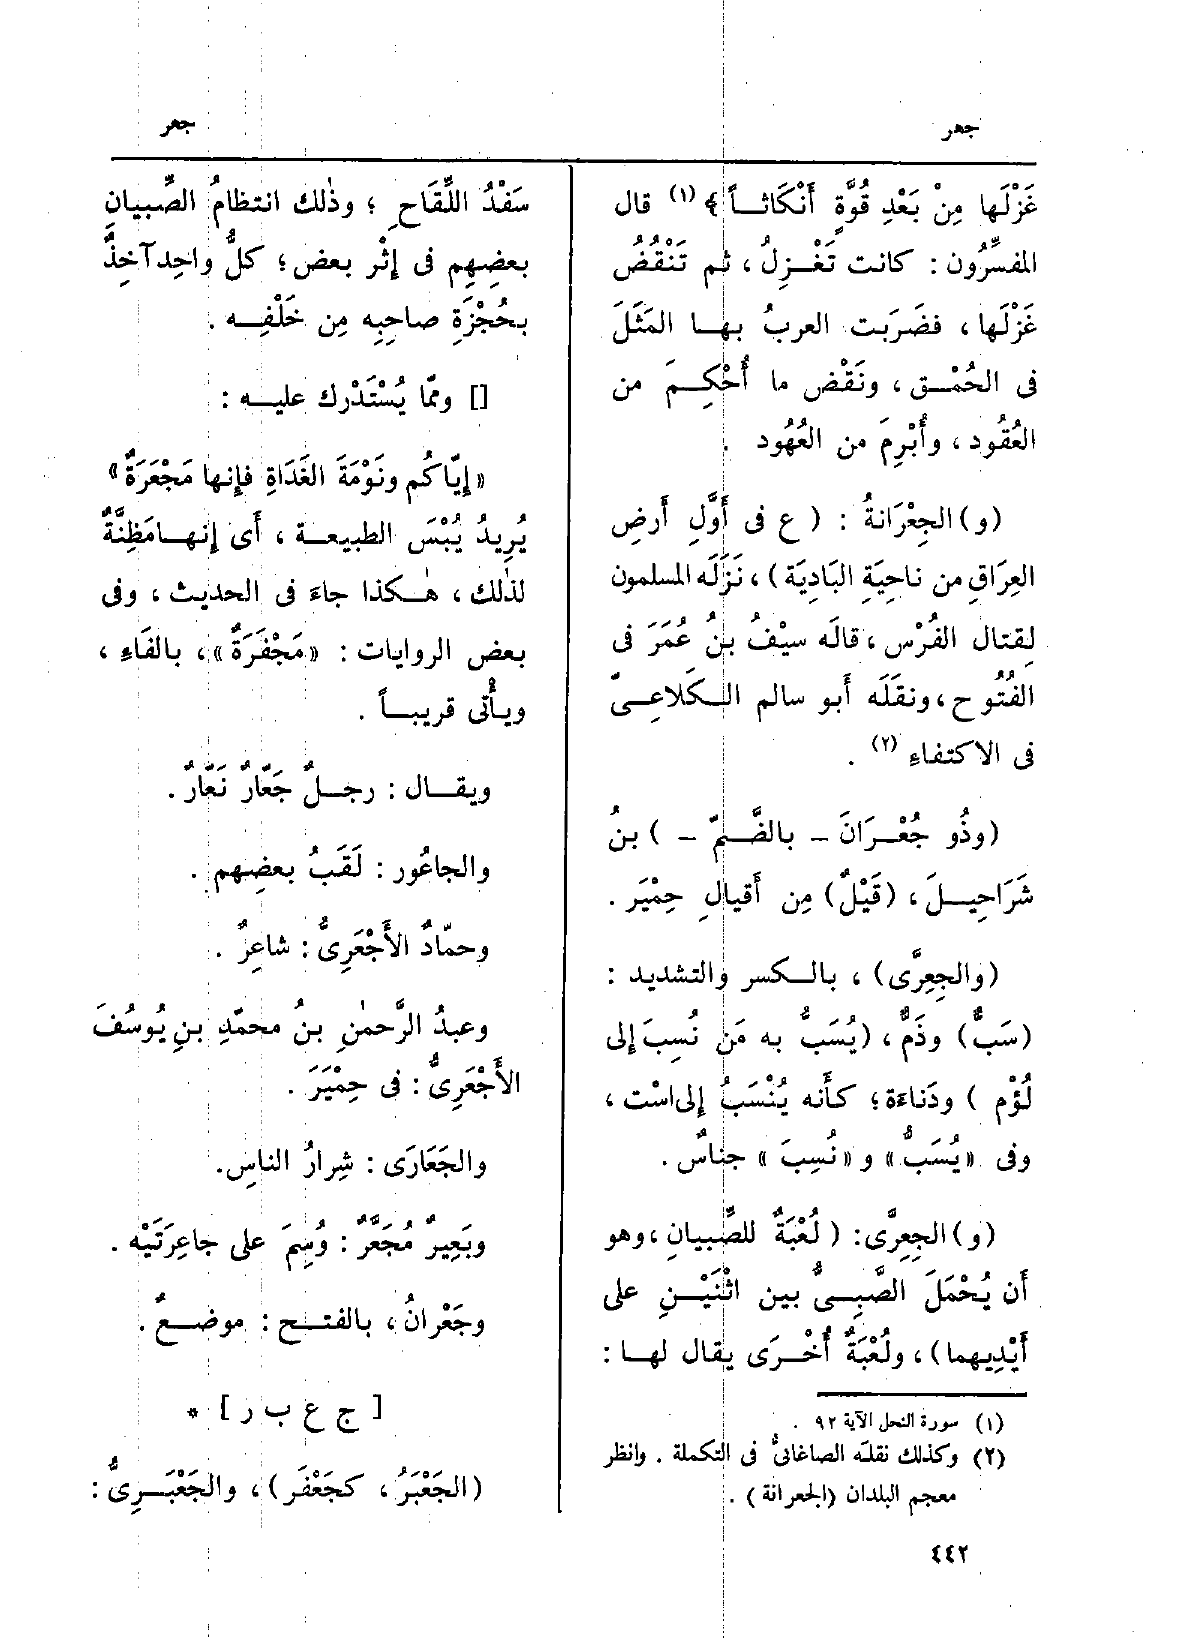 جعر
جعر
غَزْلَها مِنْ بَعْدِ قُوَّةٍ أَنْكَاثـاً﴾ (١) قال
المفسِّرُون : كانت تَغْـزِلُ ، ثم تَنْقُضُ
غَزْلَها ، فضَرَبت العربُ بهـا المَثَلَ
فى الحُمْـق ، ونَقْضِ ما أُحْكِـمَ من
العُقُود ، وأُبْرِمَ من العُهُود .
(و) الجِعْرَانَةُ : ( ع فى أَوَّلِ أَرضِ
العِرَاقِ من ناحِيَةِ البَادِيَة ) ، نَزَلَه المسلمون
لقتال الفُرْس ، قالَه سيْفُ بنُ عُمَرَ فى
الفُتُوح ، ونقَلَه أبو سالم الـكَلَاعِـىّ
فى الاكتفاءِ (٢) .
(وذُو جُعْـرَانَ - بالضَّـمّ - ) بنُ
شَرَاحِيـلَ ، (قَيْلٌ) مِن أَقيالِ حِمْيَر .
(والجِعِرَّى) ، بالـكسر والتشديد :
(سَبٌّ) وذَمٌّ ، (يُسَبُّ به مَنْ نُسِبَ إِلى
لُؤْم ) ودَناءَة ؛ كأَنه يُنْسَبُ إِلى اسْت ،
وفى «يُسَبُّ» و «نُسِبَ» جِناسٌ .
(و) الجِعِرَّى: ( لُعْبَةٌ للصِّبيانِ ، وهو
أَن يُحْمَلَ الصَّبِـىُّ بين اثْنَيْـنِ على
أَيْدِيهما) ، ولُعْبَةٌ أُخْـرَى يقال لهـا :
(١) سورة النحل الآية ٩٢ .
(٢) وكذلك نقله الصاغانىُّ فى التكملة . وانظر
معجم البلدان (الجعرانة) .
سَفْدُ اللِّقَاحِ ؛ وذٰلك انتظامُ الصِّبيانِ
بعضِهم فى إِثْر بعض ؛ كلُّ واحِدٍ آخِذٌ
بحُجْزَةِ صاحِبِه مِن خَلْفِـه .
[] وممّا يُسْتَدْرك عليـه :
«إِيّاكُم ونَوْمَةَ الغَدَاةِ فإِنها مَجْعَرَةٌ»
يُرِيدُ يُبْسَ الطبيعـة ، أَى إِنهـا مَظِنَّةٌ
لذٰلك ، هٰـكذا جاءَ فى الحديث ، وفى
بعض الروايات : «مَجْفَرَةٌ» ، بالفَاءِ ،
ويأْتى قريبـاً .
ويقـال : رجـلٌ جَعّارٌ نَعّارٌ .
والجاعُور : لَقَبُ بعضِهم .
وحمّادٌ الأَجْعَرِىُّ : شاعِرٌ .
وعبدُ الرَّحمٰنِ بنُ محمّدِ بنِ يُوسُفَ
الأَجْعَرِىُّ : فى حِمْيَرَ .
والجَعَارَى : شِرارُ الناسِ .
وبَعِيرٌ مُجَعَّرٌ : وُسِمَ على جاعِرَتَيْه .
وجَعْرانُ ، بالفتـح : موضـعٌ .
[ ج ع ب ر ] *
(الجَعْبَرُ ، كجَعْفَر) ، والجَعْبَـرِىُّ :
٤٤٢